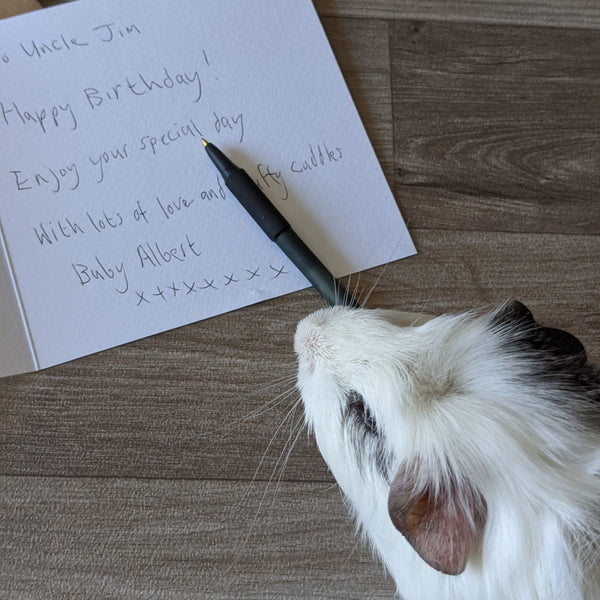 o Uncle Jim
Happy Birthday!
Enjoy your special day
With lots of love and cuddles
Baby Albert
x+xxxxxx